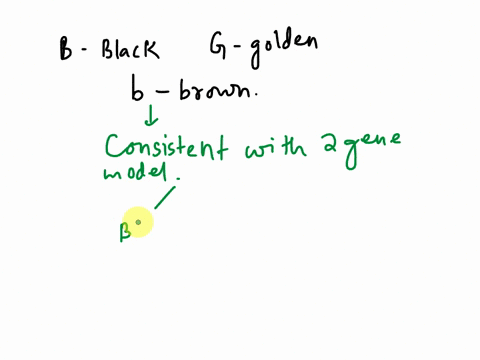 B - Black G - golden
b - brown.
Consistent with 2 gene
model.
B